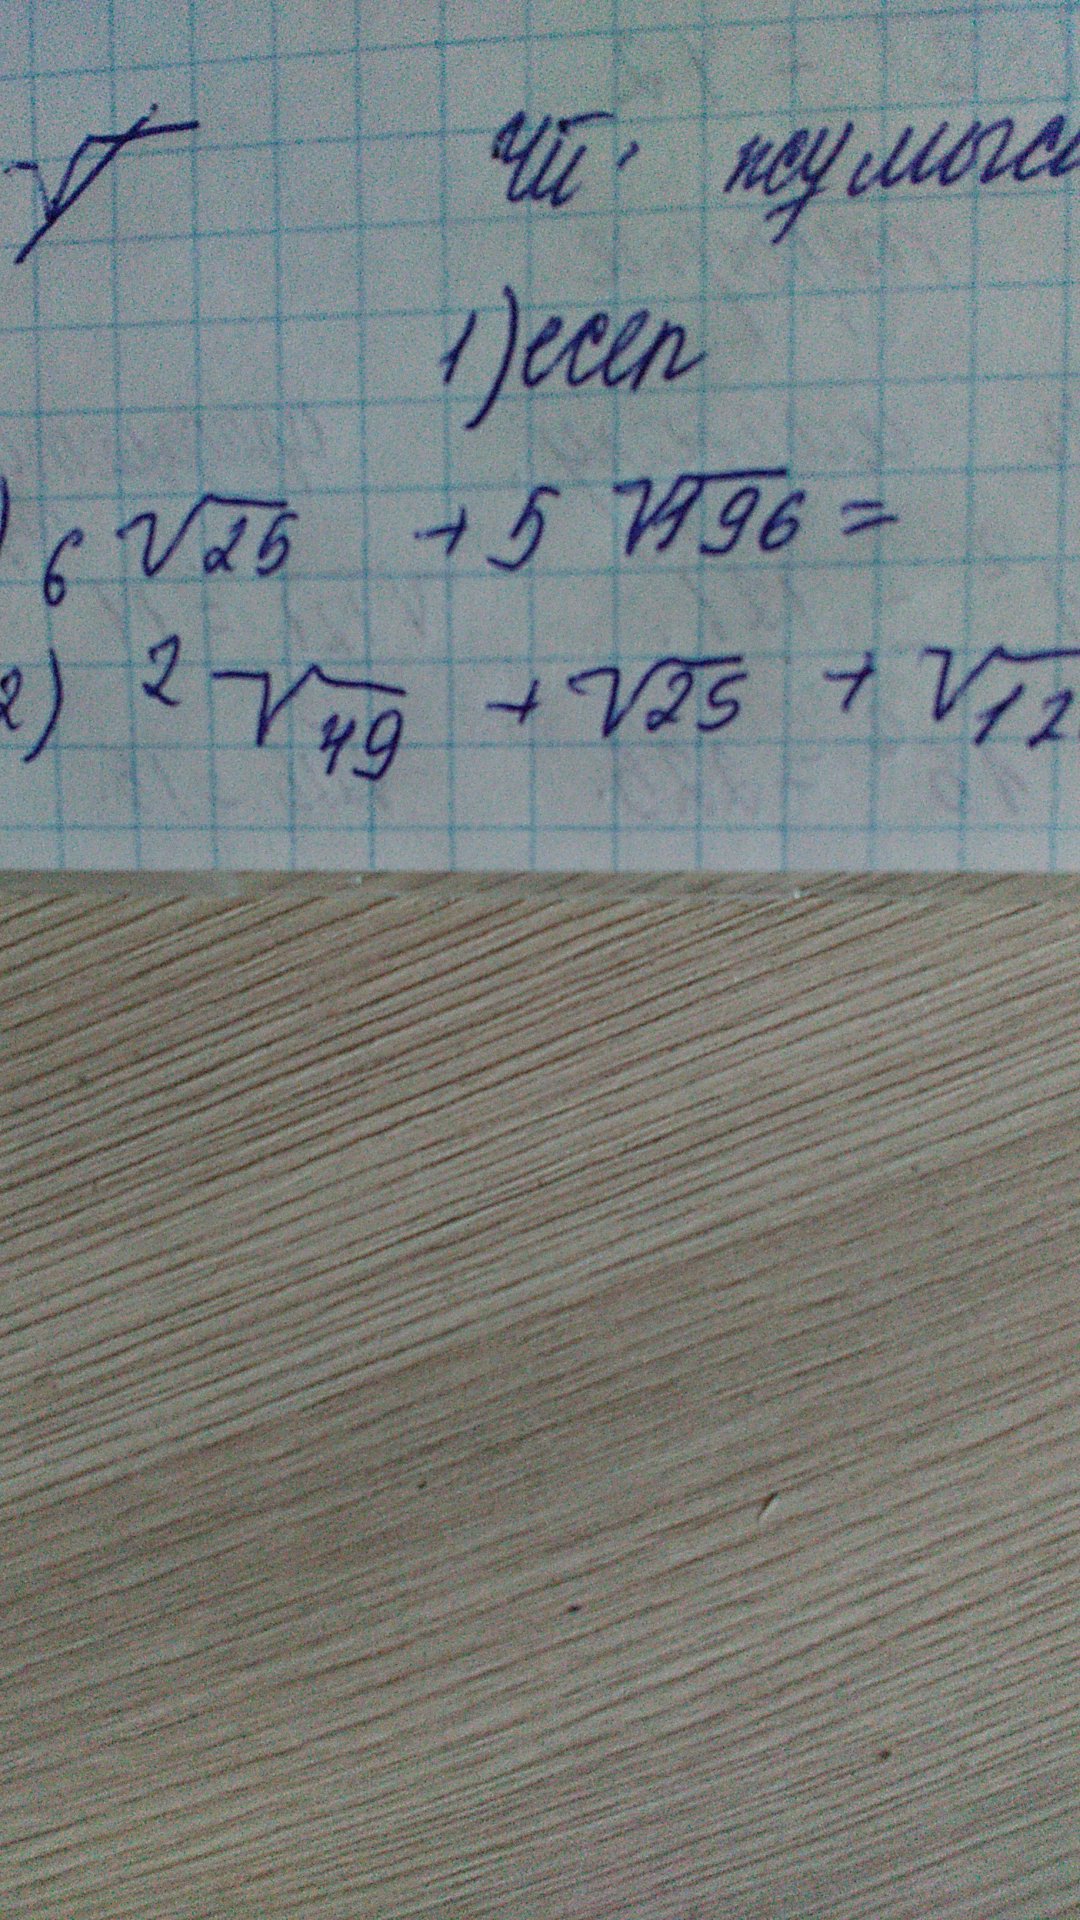 жумыс
1) есеп
) 6 √25 + 5 √196 =
2) 2 √49 + √25 + √12